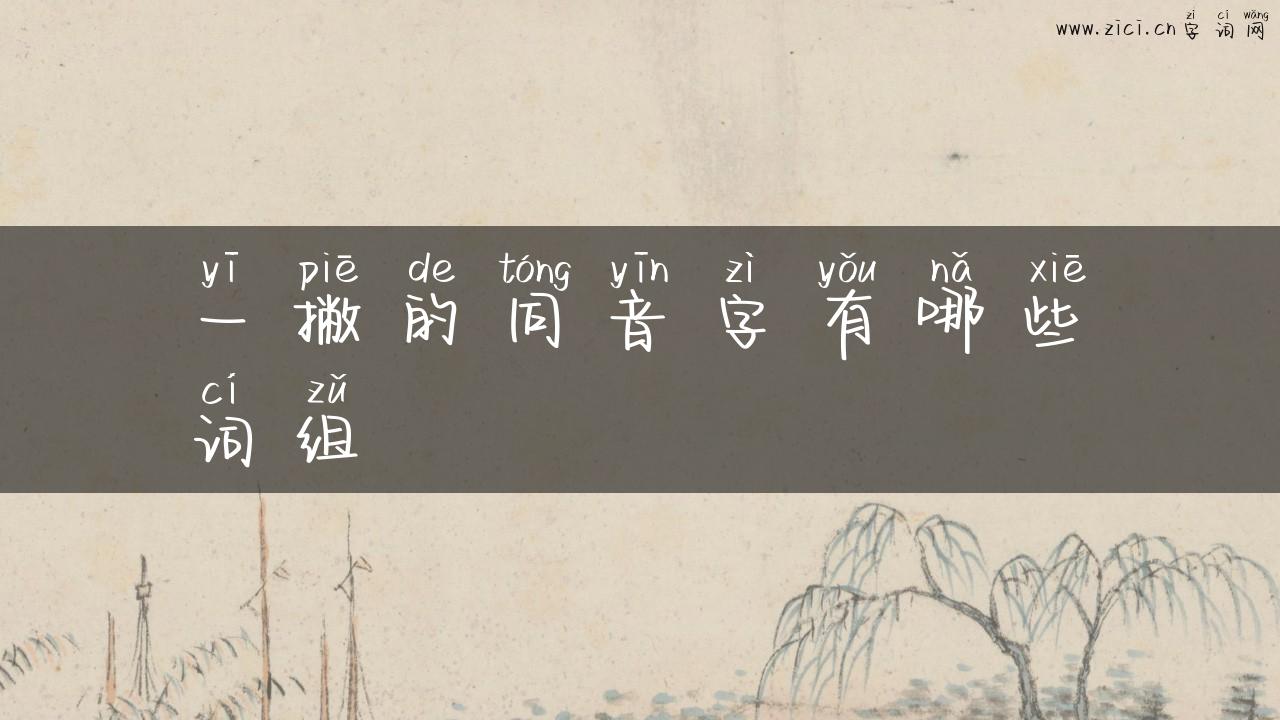 zì cí wǎng
www.zici.cn 字词网
yī piē de tóng yīn zì yǒu nǎ xiē
一撇的同音字有哪些
cí zǔ
词组